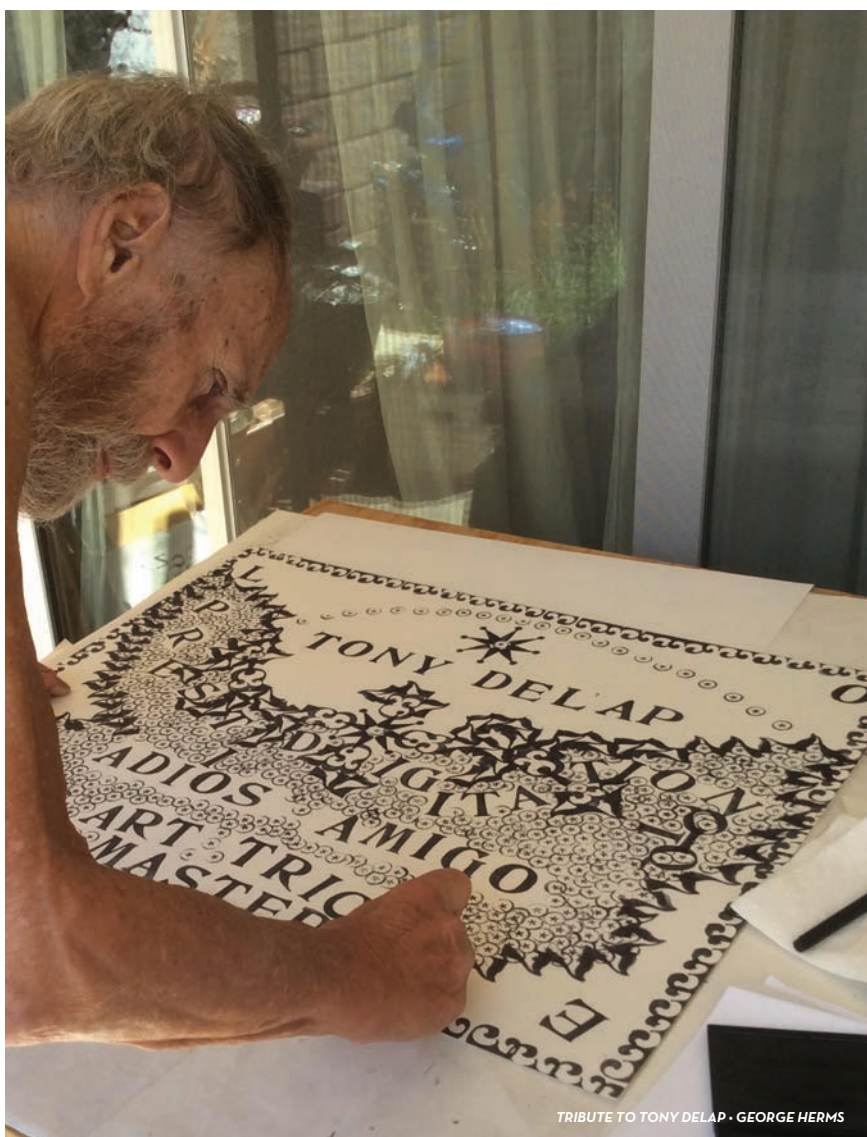 L
O
TONY DELAP
PRESTIDIGITATION
ADIOS AMIGO
ART TRIC
MASTER
E
TRIBUTE TO TONY DELAP · GEORGE HERMS